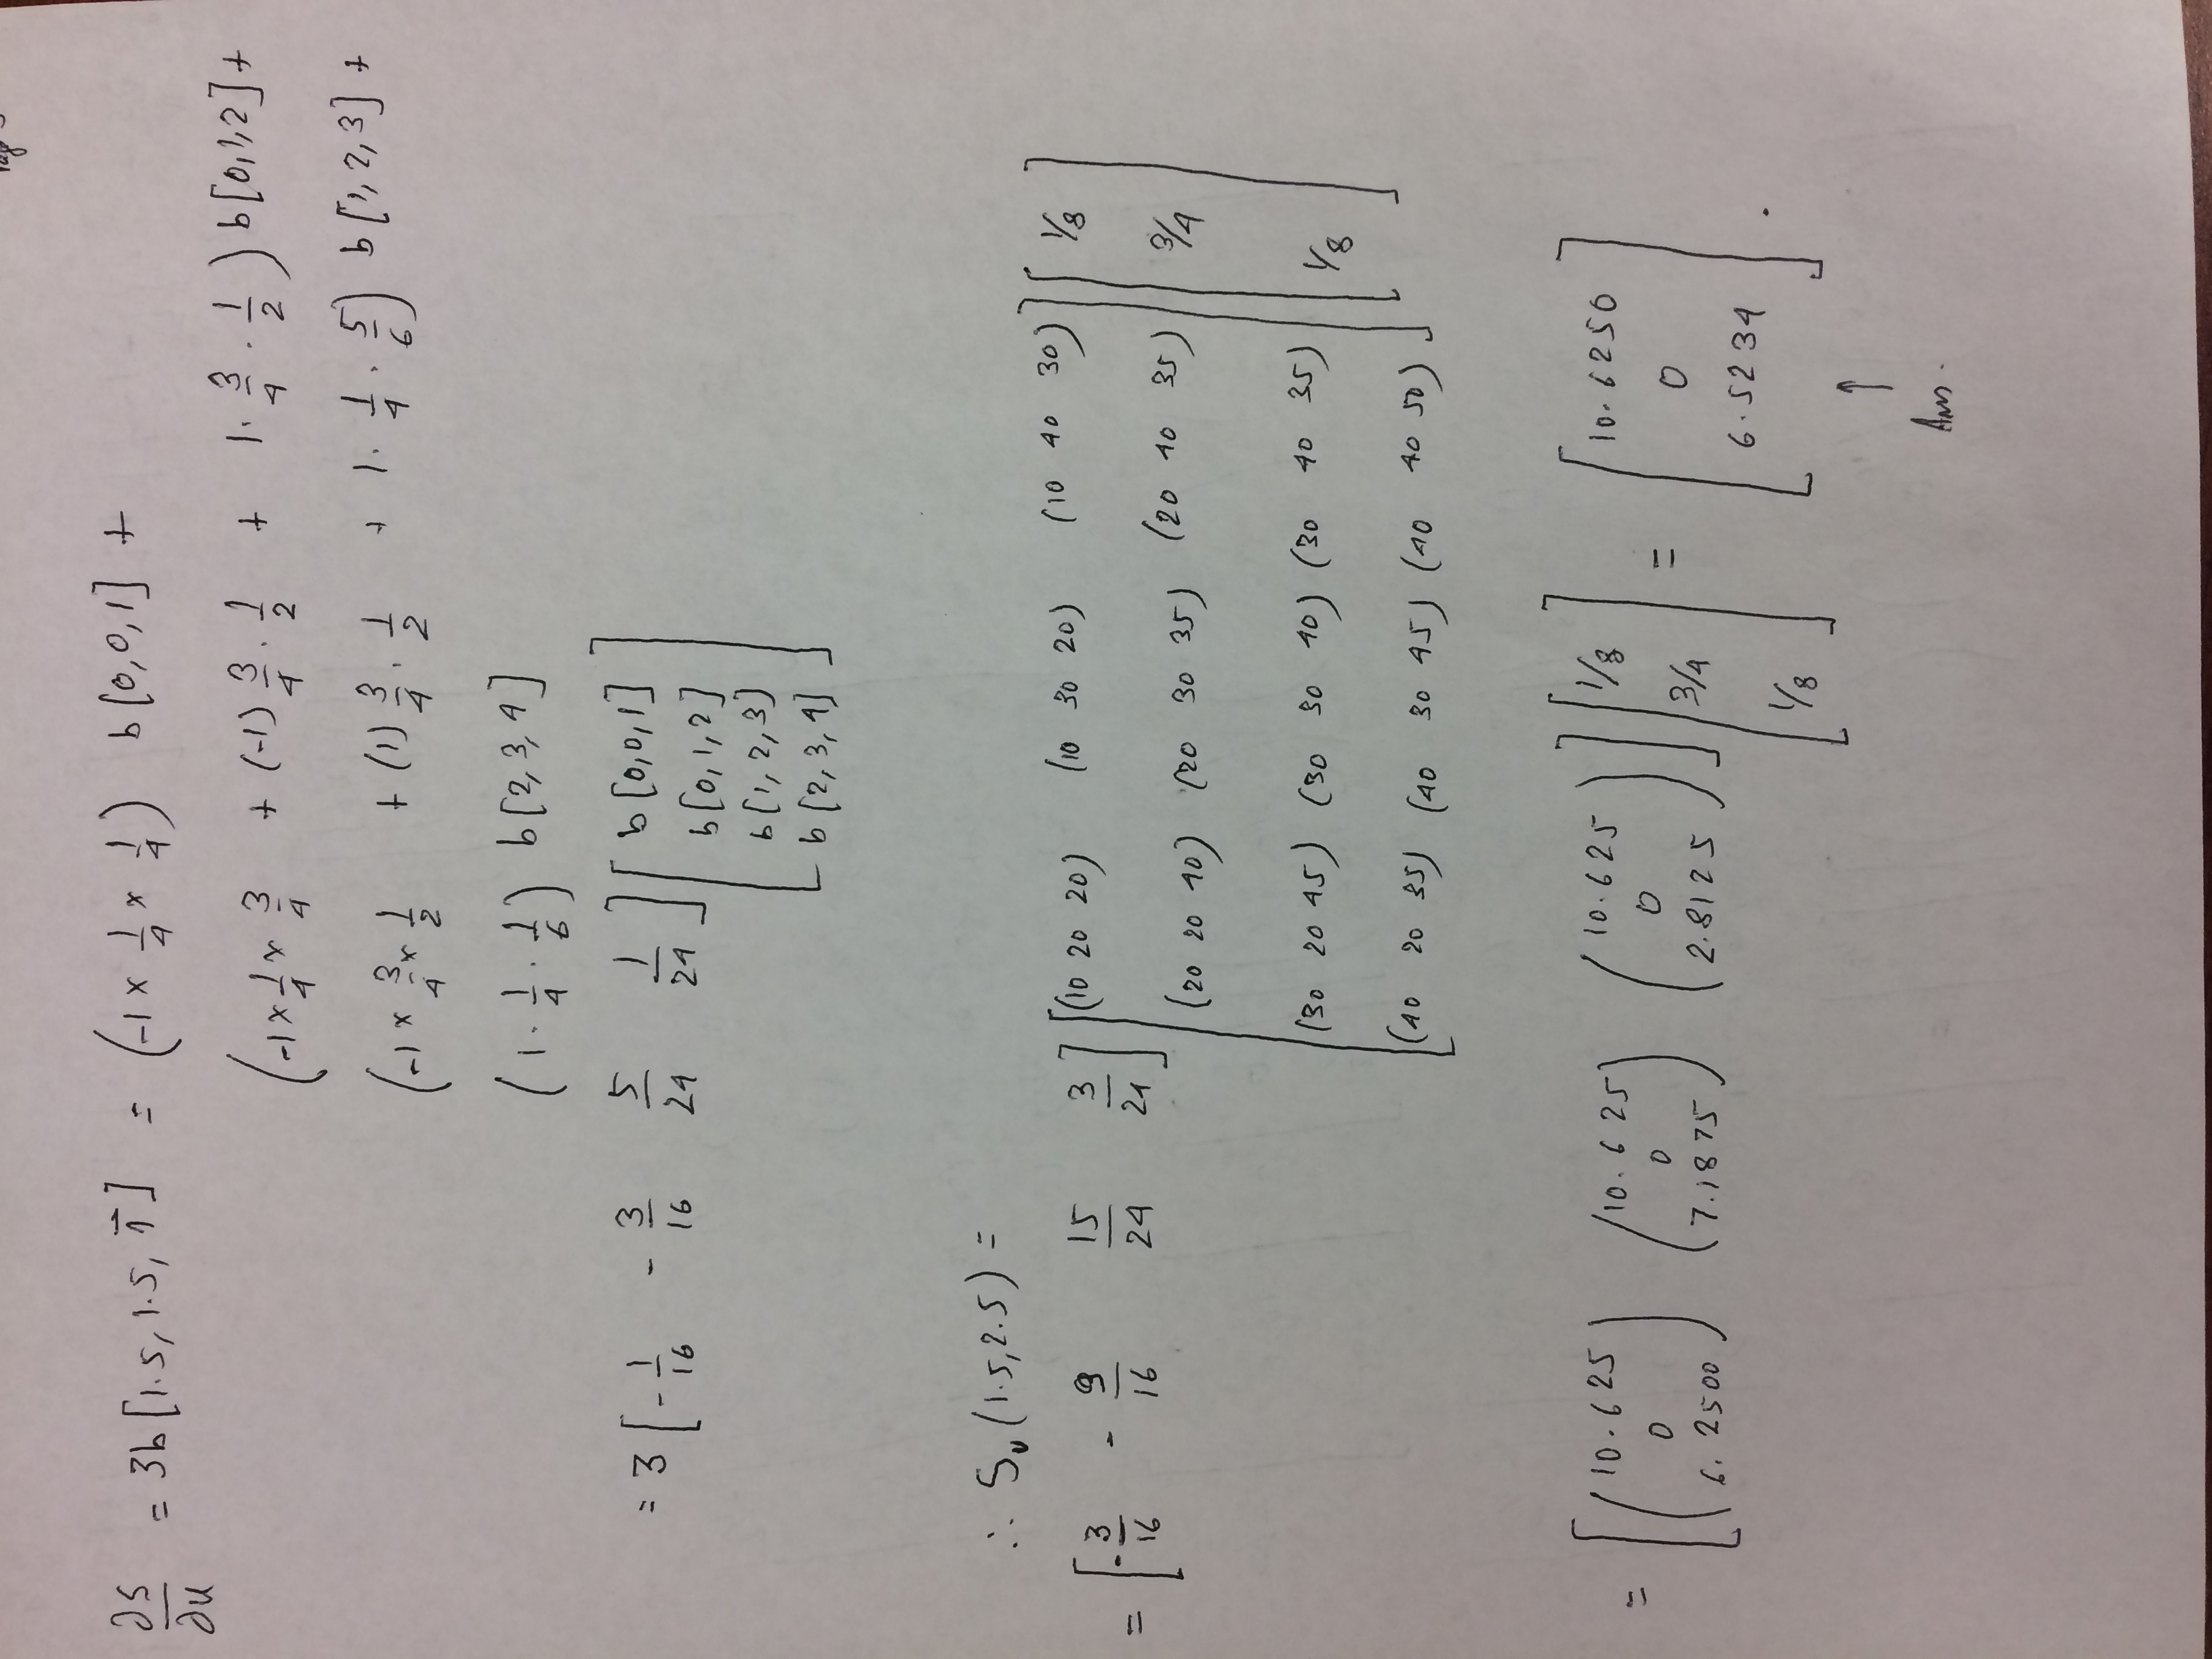 Page
∂S/∂u = 3b[1.5, 1.5, 1⃗] = (-1 × 1/4 × 1/4) b[0,0,1] +
(-1 × 1/4 × 3/4 + (-1) 3/4 · 1/2 + 1 · 3/4 · 1/2) b[0,1,2] +
(-1 × 3/4 × 1/2 + (1) 3/4 · 1/2 + 1 · 1/4 · 5/6) b[1,2,3] +
(1 · 1/4 · 1/6) b[2,3,4]
= 3 [-1/16 -3/16 5/24 1/24] [b[0,0,1]
b[0,1,2]
b[1,2,3]
b[2,3,4]]
∴ Su(1.5,2.5) =
= [-3/16 -9/16 15/24 3/24] [(10 20 20) (10 30 20) (10 40 30)] [1/8
(20 20 40) (20 30 35) (20 40 35) 3/4
(30 20 45) (30 30 40) (30 40 35) 1/8]
(40 20 35) (40 30 45) (40 40 50)]
= [(10.625 (10.625 (10.625 [1/8 = [10.6250
0 0 0 3/4 0
6.2500) 7.1875) 2.8125)] 1/8] 6.5234].
↑
Ans.